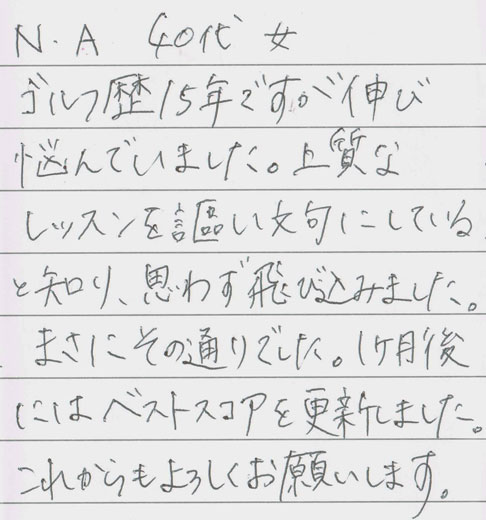 N.A 40代 女
ゴルフ歴15年ですが伸び
悩んでいました。上質な
レッスンを謳い文句にしている
と知り、思わず飛び込みました。
まさにその通りでした。1ヶ月後
にはベストスコアを更新しました。
これからもよろしくお願いします。